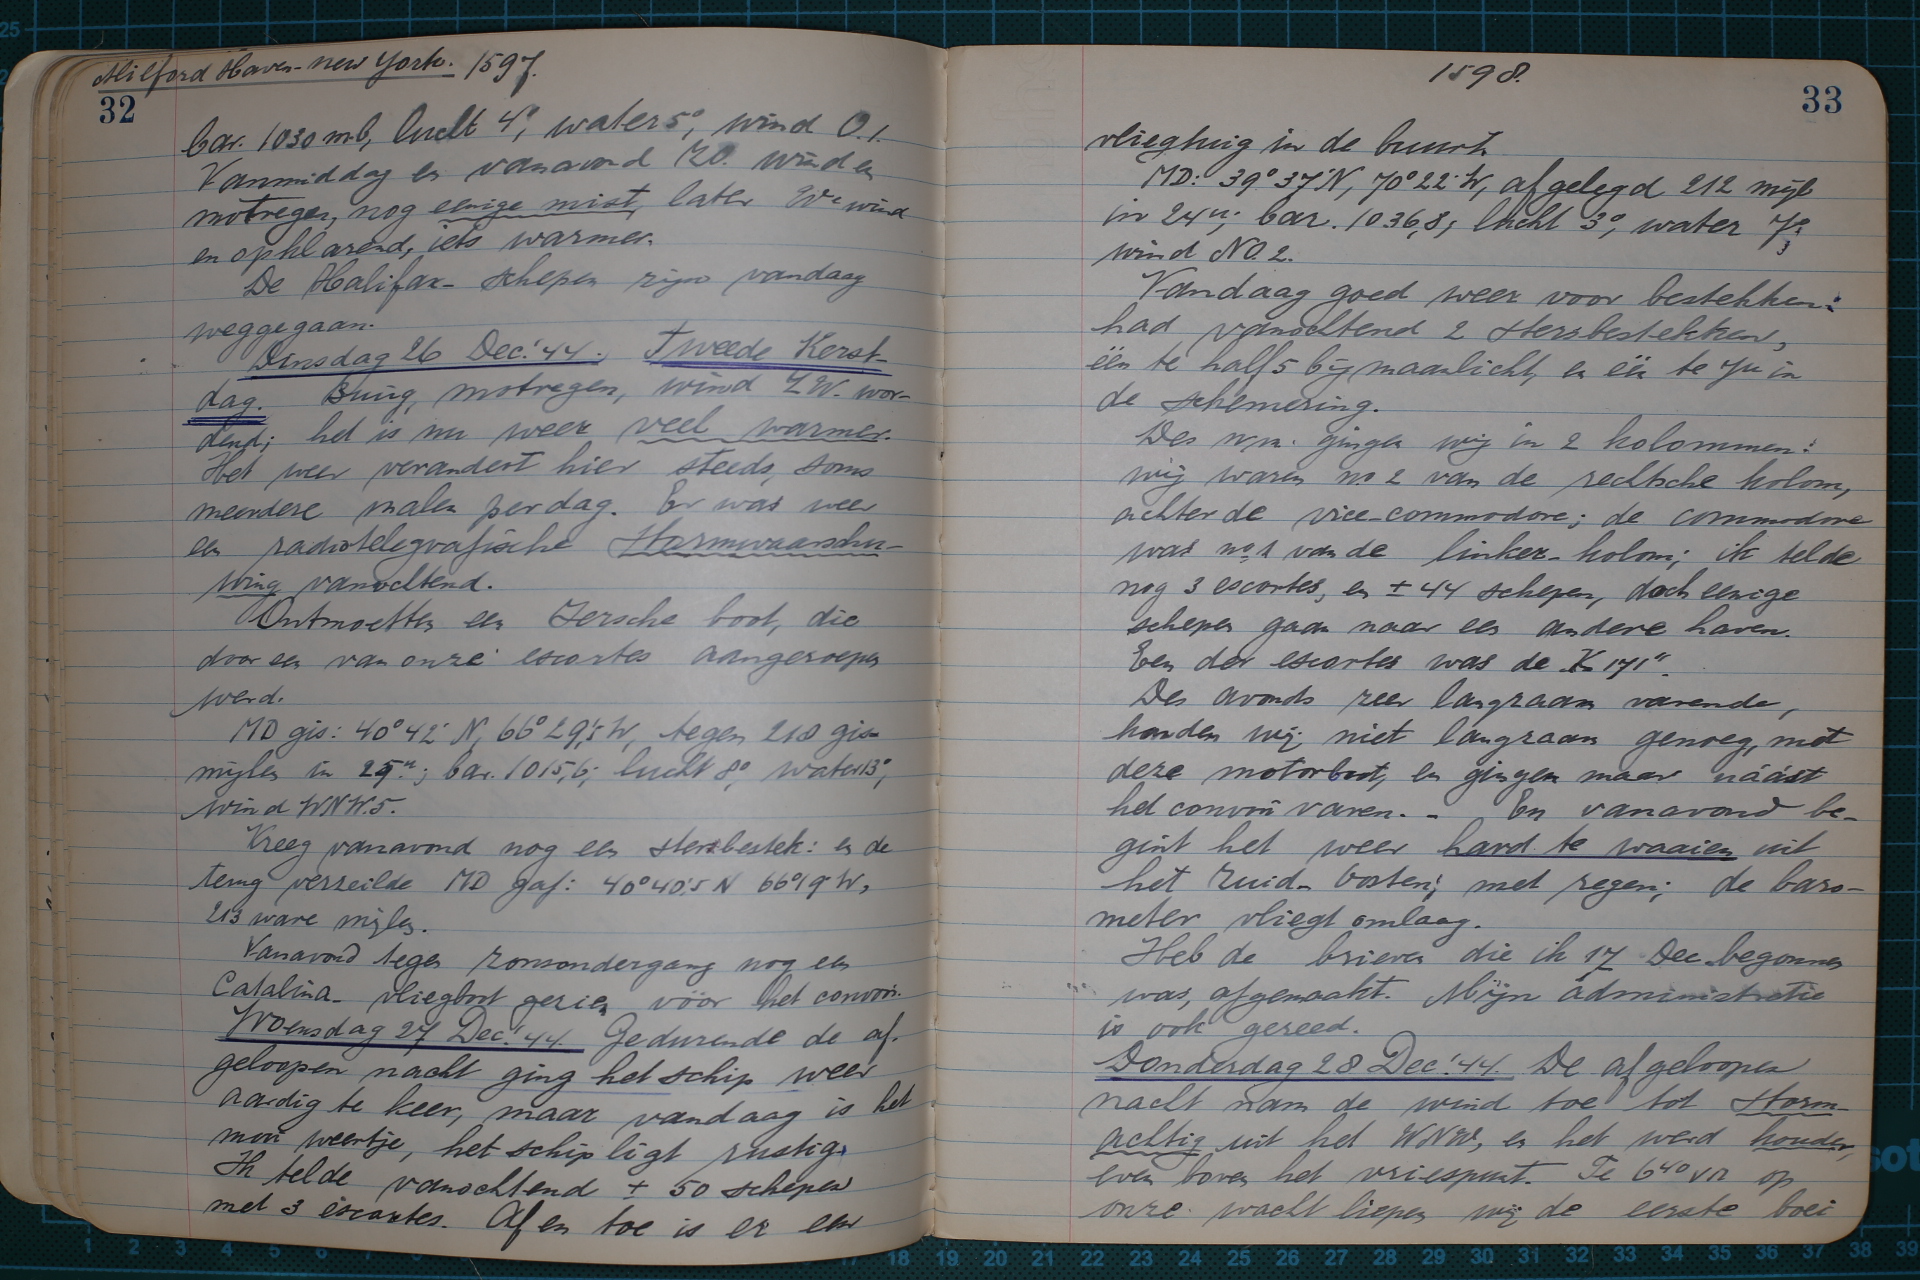 Milford Haven - New York. 1597.
32
bar. 1030 mb, lucht 4°, water 5°, wind O.1.
Vanmiddag en vanavond ZO. wind en
motregen, nog eenige mist, later We wind
en opklarend, iets warmer.
De Halifax- schepen zijn vandaag
weggegaan.
Dinsdag 26 Dec.'44. Tweede Kerst-
dag. Buiig, motregen, wind ZW. wor-
dend; het is nu weer veel warmer.
Het weer verandert hier steeds, soms
meerdere malen per dag. Er was weer
een radiotelegrafische Stormwaarschu-
wing vanochtend.
Ontmoetten een Iersche boot, die
door een van onze escortes aangeroepen
werd.
MD gis: 40°42' N, 66°29,'5 W, tegen 218 gis-
mijlen in 25u; bar. 1015,6; lucht 8°, water 13°,
wind WNW.5.
Kreeg vanavond nog een sterbestek: en de
terug verzeilde MD gaf: 40°40,'5 N 66°19' W,
213 ware mijlen.
Vanavond tegen zonsondergang nog een
Catalina- vliegboot gezien vóór het convooi.
Woensdag 27 Dec.'44. Gedurende de af-
geloopen nacht ging het schip weer
aardig te keer, maar vandaag is het
mooi weertje, het schip ligt rustig.
Ik telde vanochtend ± 50 schepen
met 3 escortes. Af en toe is er een
1598.
33
vliegtuig in de buurt.
MD: 39°37' N, 70°22' W, afgelegd 212 mijl
in 24u; bar. 1036,8; lucht 3°, water 7°;
wind NO.2.
Vandaag goed weer voor bestekken:
had vanochtend 2 sterbestekken,
één te half 5 bij maanlicht, en één te 7u in
de schemering.
Des n.m. gingen wij in 2 kolommen:
wij waren no 2 van de rechtsche kolom,
achter de vice-commodore; de commodore
was no 1 van de linker-kolom; ik telde
nog 3 escortes, en ± 44 schepen, doch eenige
schepen gaan naar een andere haven.
Een der escortes was de "K 171".
Des avonds zeer langzaam varende,
konden wij niet langzaam genoeg, met
deze motorboot, en gingen maar náást
het convooi varen. - En vanavond be-
gint het weer hard te waaien uit
het Zuid- Oosten; met regen; de baro-
meter vliegt omlaag.
Heb de brieven die ik 17 Dec begonnen
was, afgemaakt. Mijn administratie
is ook gereed.
Donderdag 28 Dec.'44. De afgeloopen
nacht nam de wind toe tot Storm-
achtig uit het WNW, en het werd kouder,
even boven het vriespunt. Te 6 40 vm op
onze wacht liepen wij de eerste boei